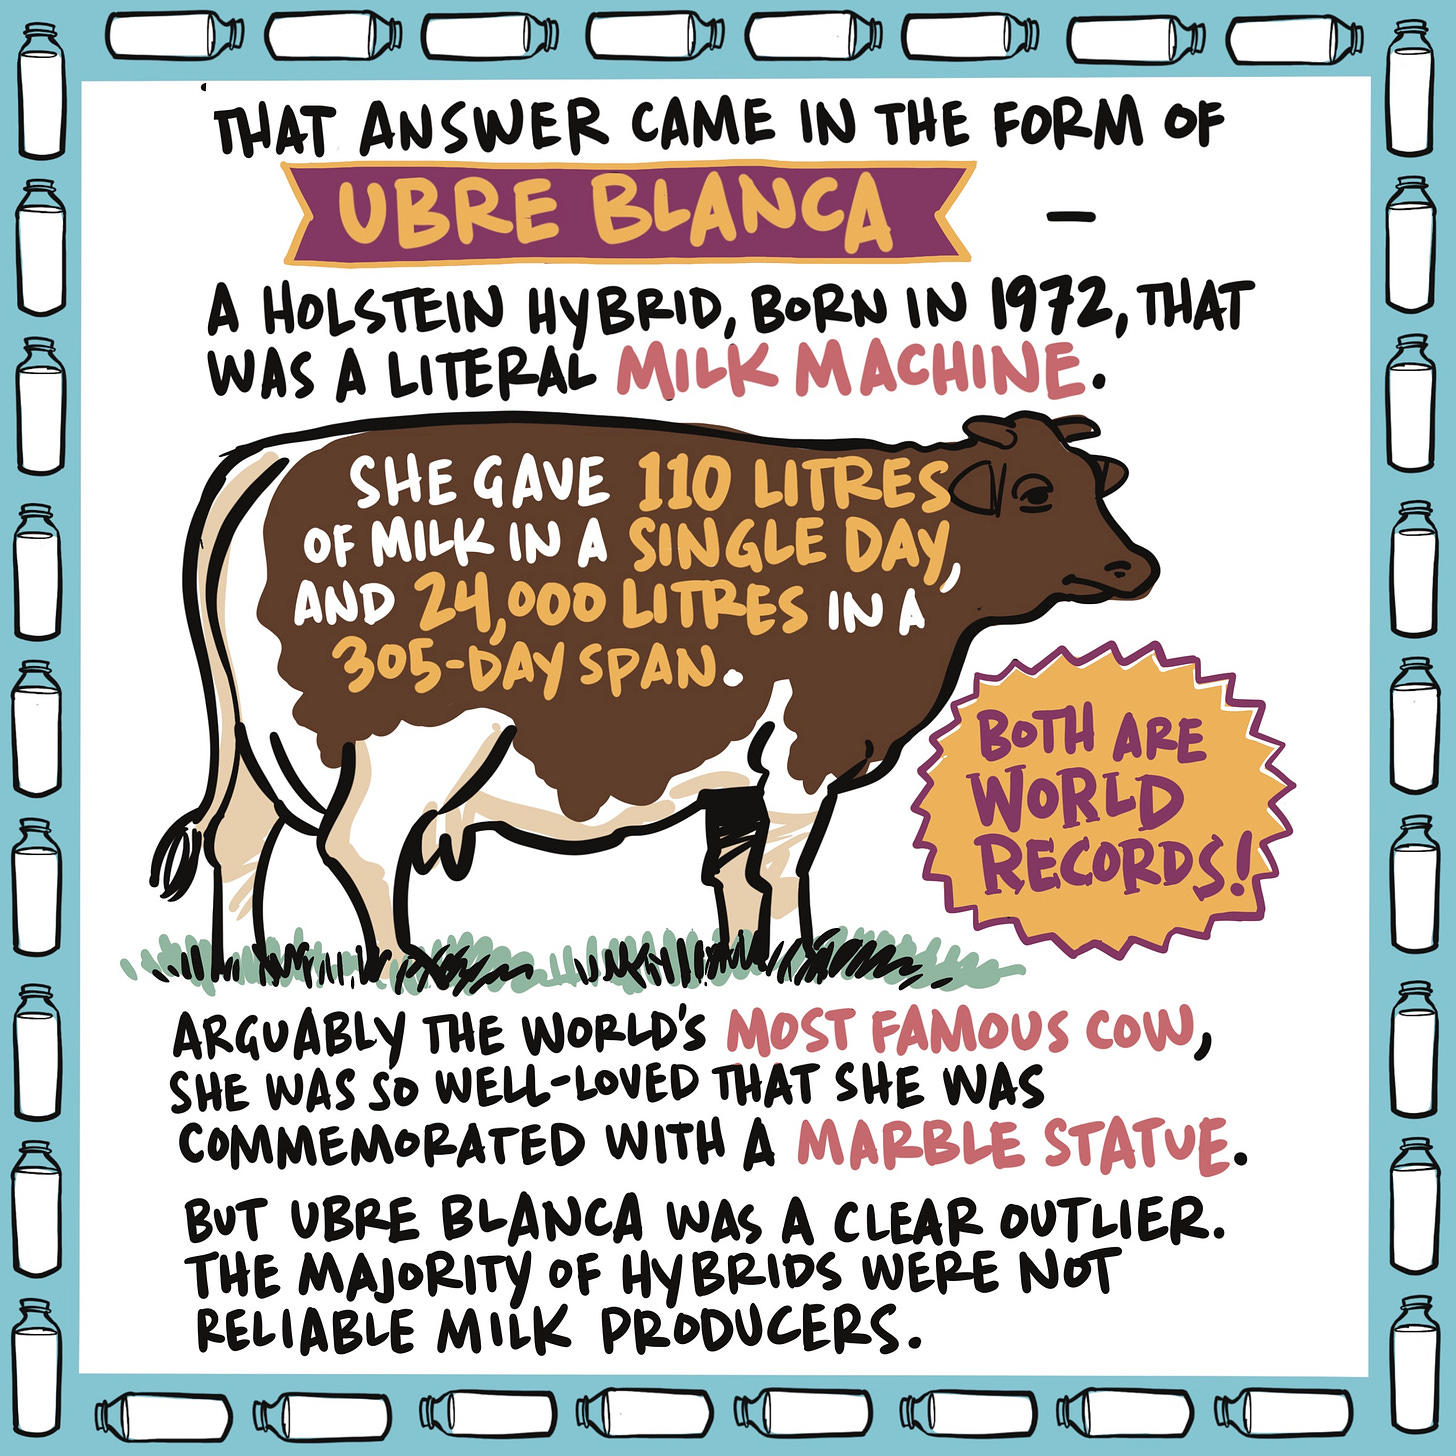 THAT ANSWER CAME IN THE FORM OF
UBRE BLANCA —
A HOLSTEIN HYBRID, BORN IN 1972, THAT
WAS A LITERAL MILK MACHINE.
SHE GAVE 110 LITRES
OF MILK IN A SINGLE DAY,
AND 24,000 LITRES IN A
305-DAY SPAN.
BOTH ARE
WORLD
RECORDS!
ARGUABLY THE WORLD'S MOST FAMOUS COW,
SHE WAS SO WELL-LOVED THAT SHE WAS
COMMEMORATED WITH A MARBLE STATUE.
BUT UBRE BLANCA WAS A CLEAR OUTLIER.
THE MAJORITY OF HYBRIDS WERE NOT
RELIABLE MILK PRODUCERS.